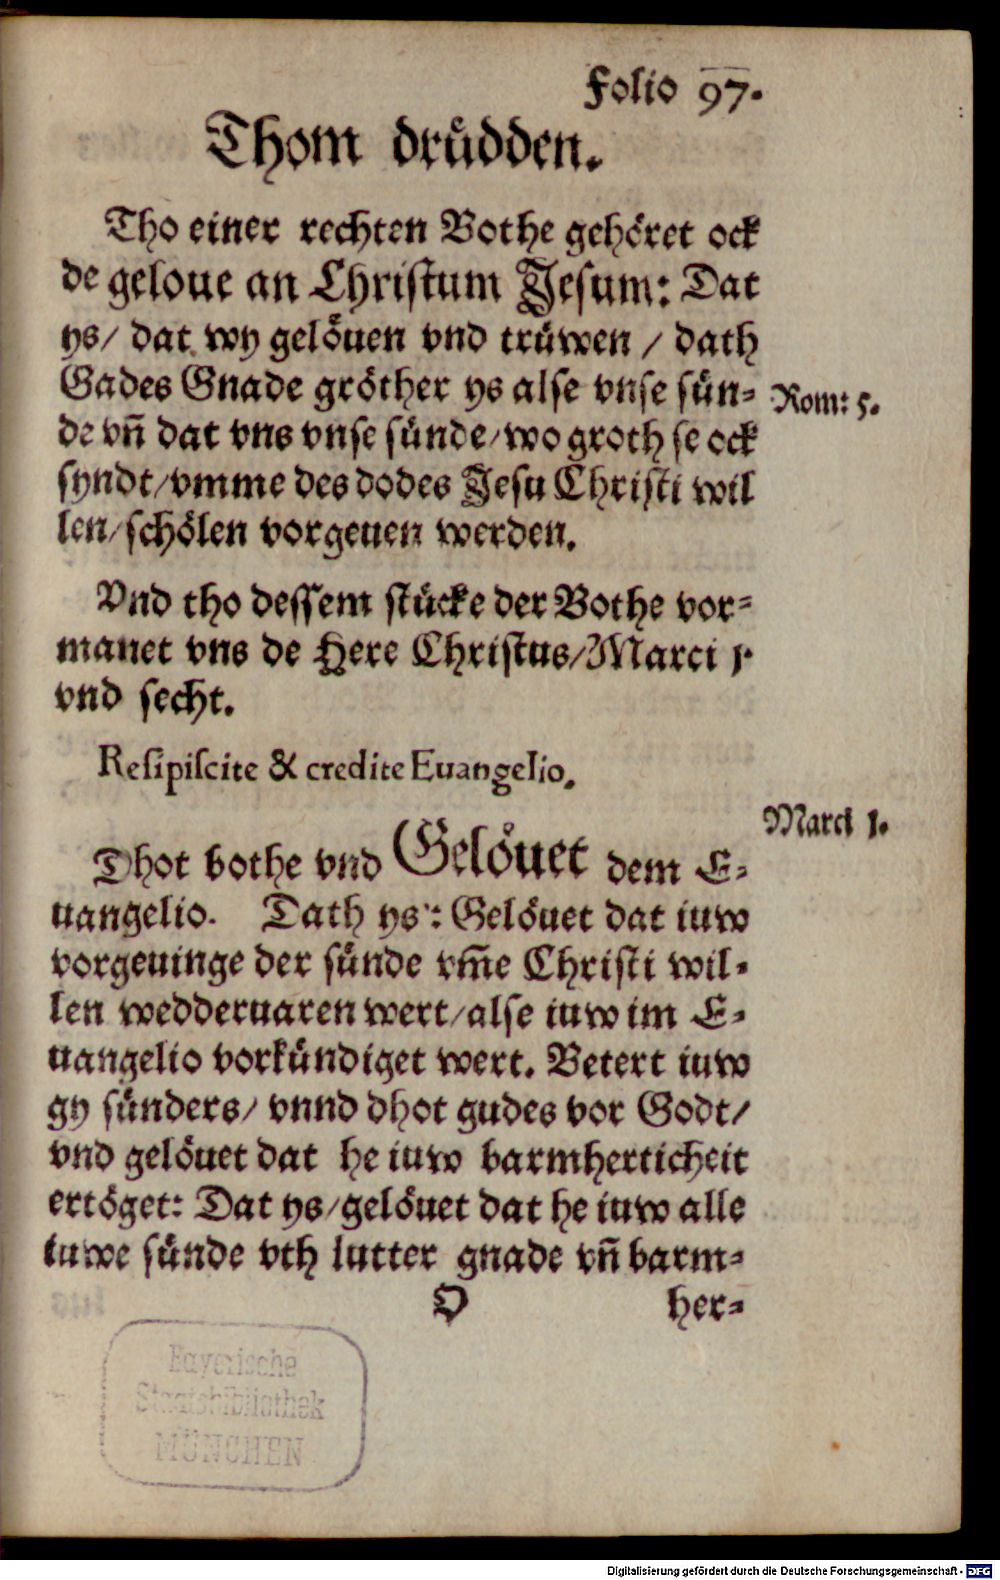 Folio 97.
Thom drüdden.
Tho einer rechten Bothe gehöret ock
de geloue an Christum Jesum: Dat
ys/ dat wy gelöuen vnd trüwen / dath
Gades Gnade gröther ys alse vnse sün-
Rom: 5.
de vñ dat vns vnse sünde/wo groth se ock
syndt/vmme des dodes Jesu Christi wil
len/schölen vorgeuen werden.
Vnd tho dessem stücke der Bothe vor-
manet vns de Here Christus/Marci 1.
vnd secht.
Resipiscite & credite Euangelio.
Marci 1.
Dhot bothe vnd Gelöuet dem E-
uangelio. Dath ys: Gelöuet dat iuw
vorgeuinge der sünde vm̃e Christi wil-
len wedderuaren wert/alse iuw im E-
uangelio vorkündiget wert. Betert iuw
gy sünders/ vnnd dhot gudes vor Godt/
vnd gelöuet dat he iuw barmherticheit
ertöget: Dat ys/gelöuet dat he iuw alle
iuwe sünde vth lutter gnade vñ barm-
O her-
Bayerische
Staatsbibliothek
MÜNCHEN
Digitalisierung gefördert durch die Deutsche Forschungsgemeinschaft - DFG